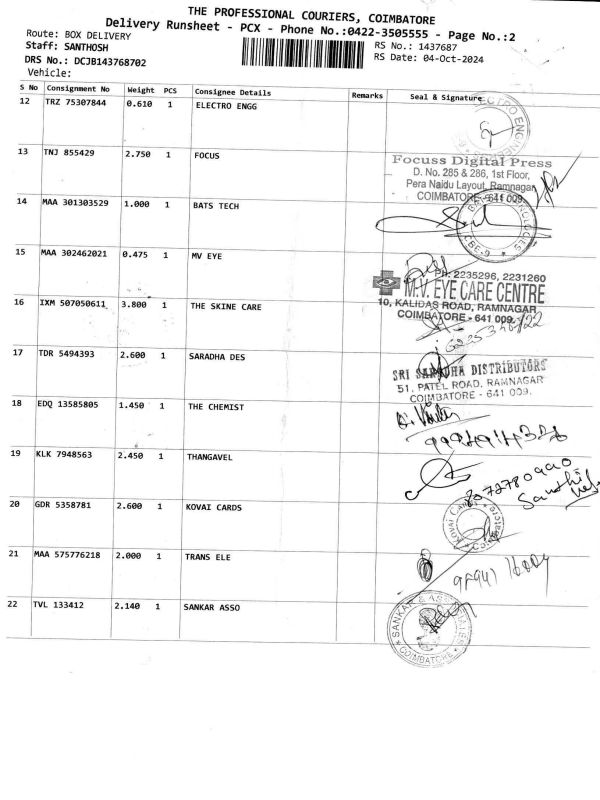 THE PROFESSIONAL COURIERS, COIMBATORE
Delivery Runsheet - PCX - Phone No.:0422-3505555 - Page No.:2
Route: BOX DELIVERY
Staff: SANTHOSH
DRS No.: DCJB143768702
Vehicle:
RS No.: 1437687
RS Date: 04-Oct-2024
S No Consignment No Weight PCS Consignee Details Remarks Seal & Signature
12 TRZ 75307844 0.610 1 ELECTRO ENGG
13 TNJ 855429 2.750 1 FOCUS
Focuss Digital Press
D. No. 285 & 286, 1st Floor,
Pera Naidu Layout, Ramnagar
COIMBATORE - 641 009.
14 MAA 301303529 1.000 1 BATS TECH
CBE-9
15 MAA 302462021 0.475 1 MV EYE
Ph: 2235296, 2231260
M.V. EYE CARE CENTRE
10, KALIDAS ROAD, RAMNAGAR
COIMBATORE - 641 009.
16 IXM 507050611 3.800 1 THE SKINE CARE
17 TDR 5494393 2.600 1 SARADHA DES
SRI SARADHA DISTRIBUTORS
51, PATEL ROAD, RAMNAGAR
COIMBATORE - 641 009.
18 EDQ 13585805 1.450 1 THE CHEMIST
19 KLK 7948563 2.450 1 THANGAVEL
20 GDR 5358781 2.600 1 KOVAI CARDS
KOVAI CARDS
21 MAA 575776218 2.000 1 TRANS ELE
22 TVL 133412 2.140 1 SANKAR ASSO
SANKAR &
COIMBATORE